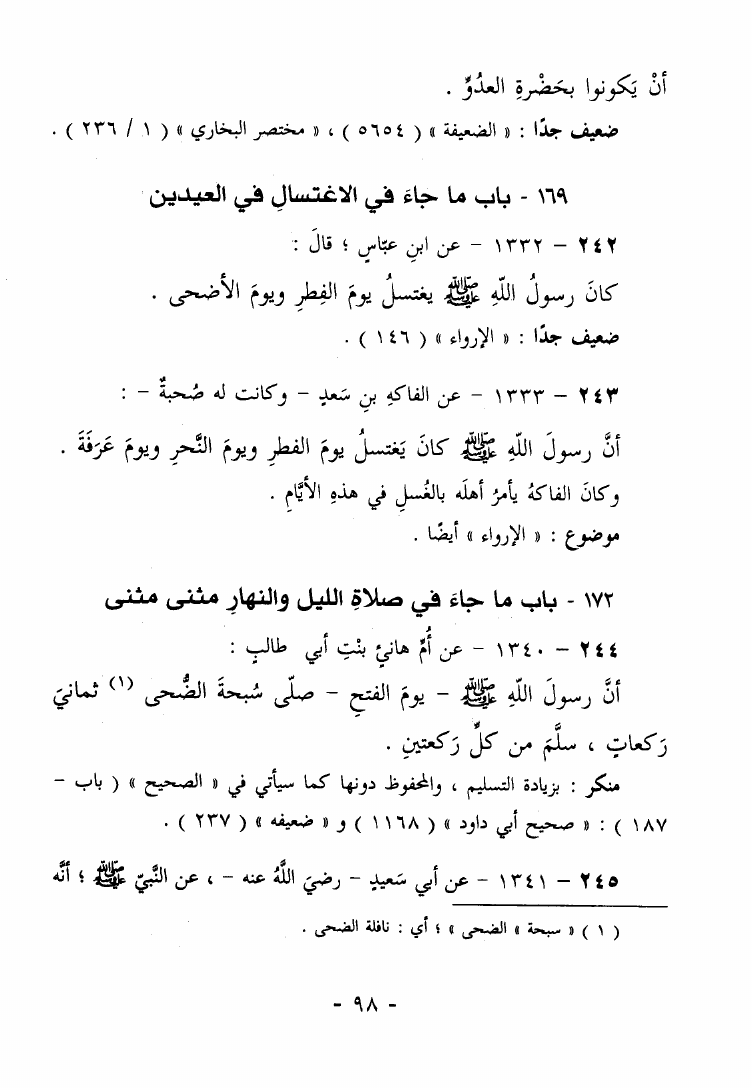 أنْ يَكونوا بحَضْرةِ العدُوِّ .
ضعيف جدًا : « الضعيفة » ( ٥٦٥٤ ) ، « مختصر البخاري » ( ١ / ٢٣٦ ) .
١٦٩ - باب ما جاءَ في الاغتسالِ في العيدين
٢٤٢ – ١٣٣٢ – عن ابنِ عبّاسٍ ؛ قالَ :
كانَ رسولُ اللّهِ ﷺ يغتسلُ يومَ الفِطرِ ويومَ الأضحى .
ضعيف جدًا : « الإرواء » ( ١٤٦ ) .
٢٤٣ – ١٣٣٣ – عن الفاكهِ بنِ سَعدٍ – وكانت له صُحبةٌ – :
أنَّ رسولَ اللّهِ ﷺ كانَ يَغتسلُ يومَ الفطرِ ويومَ النَّحرِ ويومَ عَرَفَةَ .
وكانَ الفاكهُ يأمرُ أهلَه بالغُسلِ في هذهِ الأيَّامِ .
موضوع : « الإرواء » أيضًا .
١٧٢ - باب ما جاءَ في صلاةِ الليل والنهارِ مثنى مثنى
٢٤٤ – ١٣٤٠ – عن أُمِّ هانئٍ بنْتِ أبي طالبٍ :
أنَّ رسولَ اللّهِ ﷺ – يومَ الفتحِ – صلّى سُبحةَ الضُّحى (١) ثمانيَ
رَكعاتٍ ، سلَّمَ من كلِّ رَكعتينِ .
منكر : بزيادة التسليم ، والمحفوظ دونها كما سيأتي في « الصحيح » ( باب –
١٨٧ ) : « صحيح أبي داود » ( ١١٦٨ ) و « ضعيفه » ( ٢٣٧ ) .
٢٤٥ – ١٣٤١ – عن أبي سَعيدٍ – رضيَ اللَّهُ عنه – ، عن النَّبيِّ ﷺ ؛ أنَّه
( ١ ) « سبحة » الضحى » ؛ أي : نافلة الضحى .
- ٩٨ -